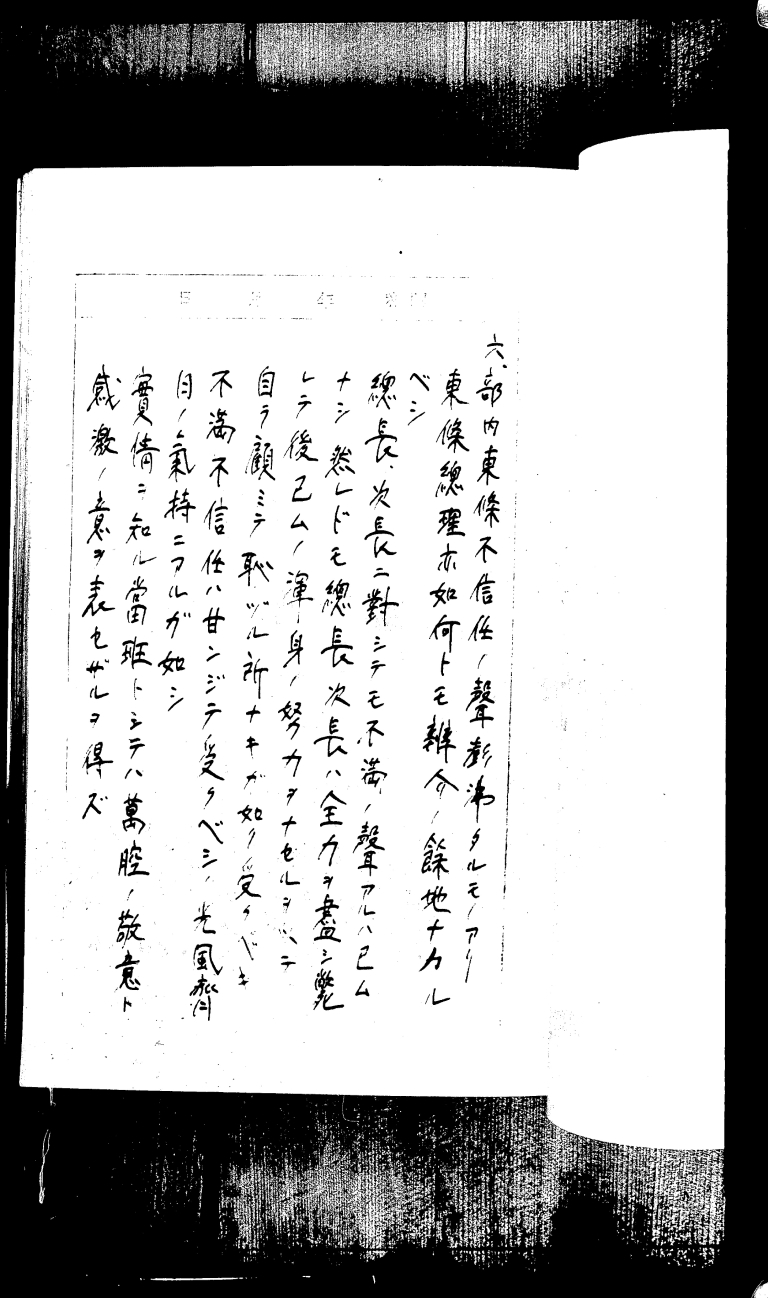 六、部内東條不信任ノ聲澎湃タルモノアリ
東條總理亦如何トモ辨介ノ餘地ナカル
ベシ
總長、次長ニ對シテモ不満ノ聲アルハ已ム
ナシ然レドモ總長次長ハ全力ヲ盡シ斃
レテ後已ムノ渾身ノ努力ヲナセルヲ以テ
自ラ顧ミテ恥ヅル所ナキガ如ク受クベキ
不満不信任ハ甘ンジテ受クベシノ光風霽
月ノ氣持ニアルガ如シ
實情ヲ知ル當班トシテハ萬腔ノ敬意ト
感激ノ意ヲ表セザルヲ得ズ